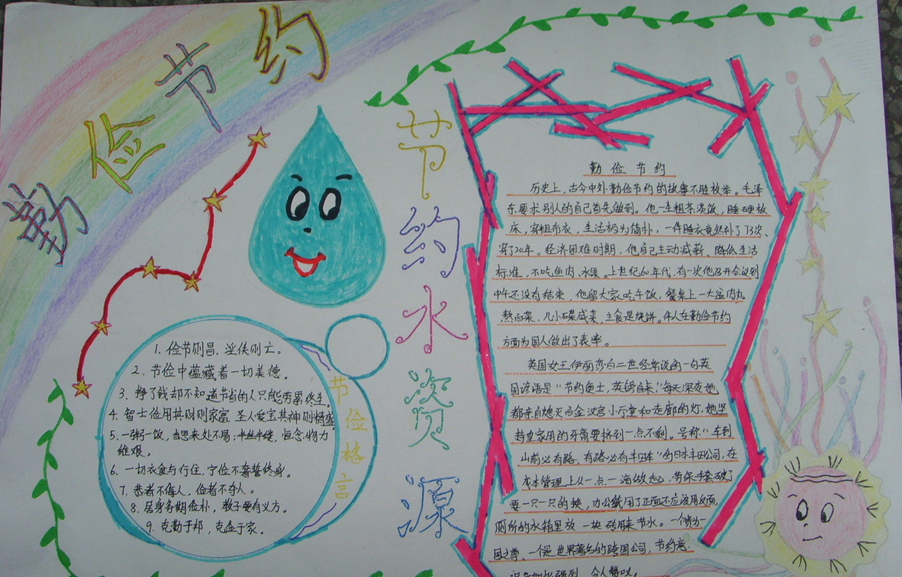 勤俭节约
节约水资源
节俭格言
1. 俭节则昌，淫佚则亡。
2. 节俭中蕴藏着一切美德。
3. 挣了钱却不知道节省的人只能劳累终生。
4. 智士俭用其财则家富 圣人爱宝其神则精盛
5. 一粥一饭，当思来处不易；半丝半缕，恒念物力
维艰。
6. 一切衣食与行住，宁俭不奢誓终身。
7. 恭者不侮人，俭者不夺人。
8. 居身务期俭朴，教子要有义方。
9. 克勤于邦，克俭于家。
勤俭节约
历史上，古今中外勤俭节约的故事不胜枚举。毛泽
东要求别人的自己首先做到。他一生粗茶淡饭，睡硬板
床，穿粗布衣，生活极为简朴，一件睡衣竟然补了73次，
穿了20年。经济困难时期，他自己主动减薪、降低生活
标准，不吃鱼肉、水果。上世纪60年代，有一次他召开会议到
中午还没有结束，他留大家吃午饭，餐桌上一大盆肉丸
熬白菜，几小碟咸菜，主食是烧饼。伟人在勤俭节约
方面为国人做出了表率。
英国女王伊丽莎白二世经常说的一句英
国谚语是“节约便士，英镑自来”，每天深夜她
都亲自熄灭白金汉宫小厅堂和走廊的灯，她坚
持皇家用的牙膏要挤到一点不剩。号称“车到
山前必有路，有路必有丰田车”的日本丰田公司，在
成本管理上从一点一滴做起，劳保手套破了
要一只一只的换，办公纸用了正面还应该用反面，
厕所的水箱里放一块砖用来节水。一个贵为一
国之尊，一个是世界著名的跨国公司，节约意